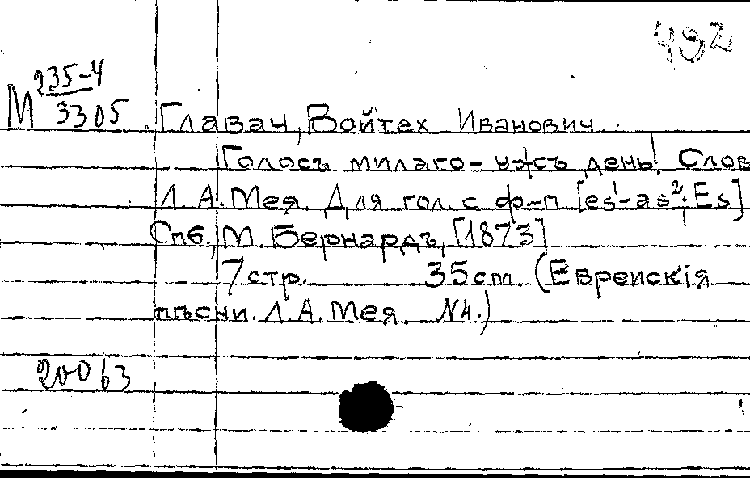 492
М 235-4
3305
Главач, Войтех Иванович.
Голосъ милаго - ужъ день! Слов
Л. А. Мея. Для гол. с ф-п [es¹-as²; Es]
Спб, М. Бернардъ, [1873]
7 стр. 35 cm. (Еврейскія
пѣсни. Л. А. Мея. N4.)
20063